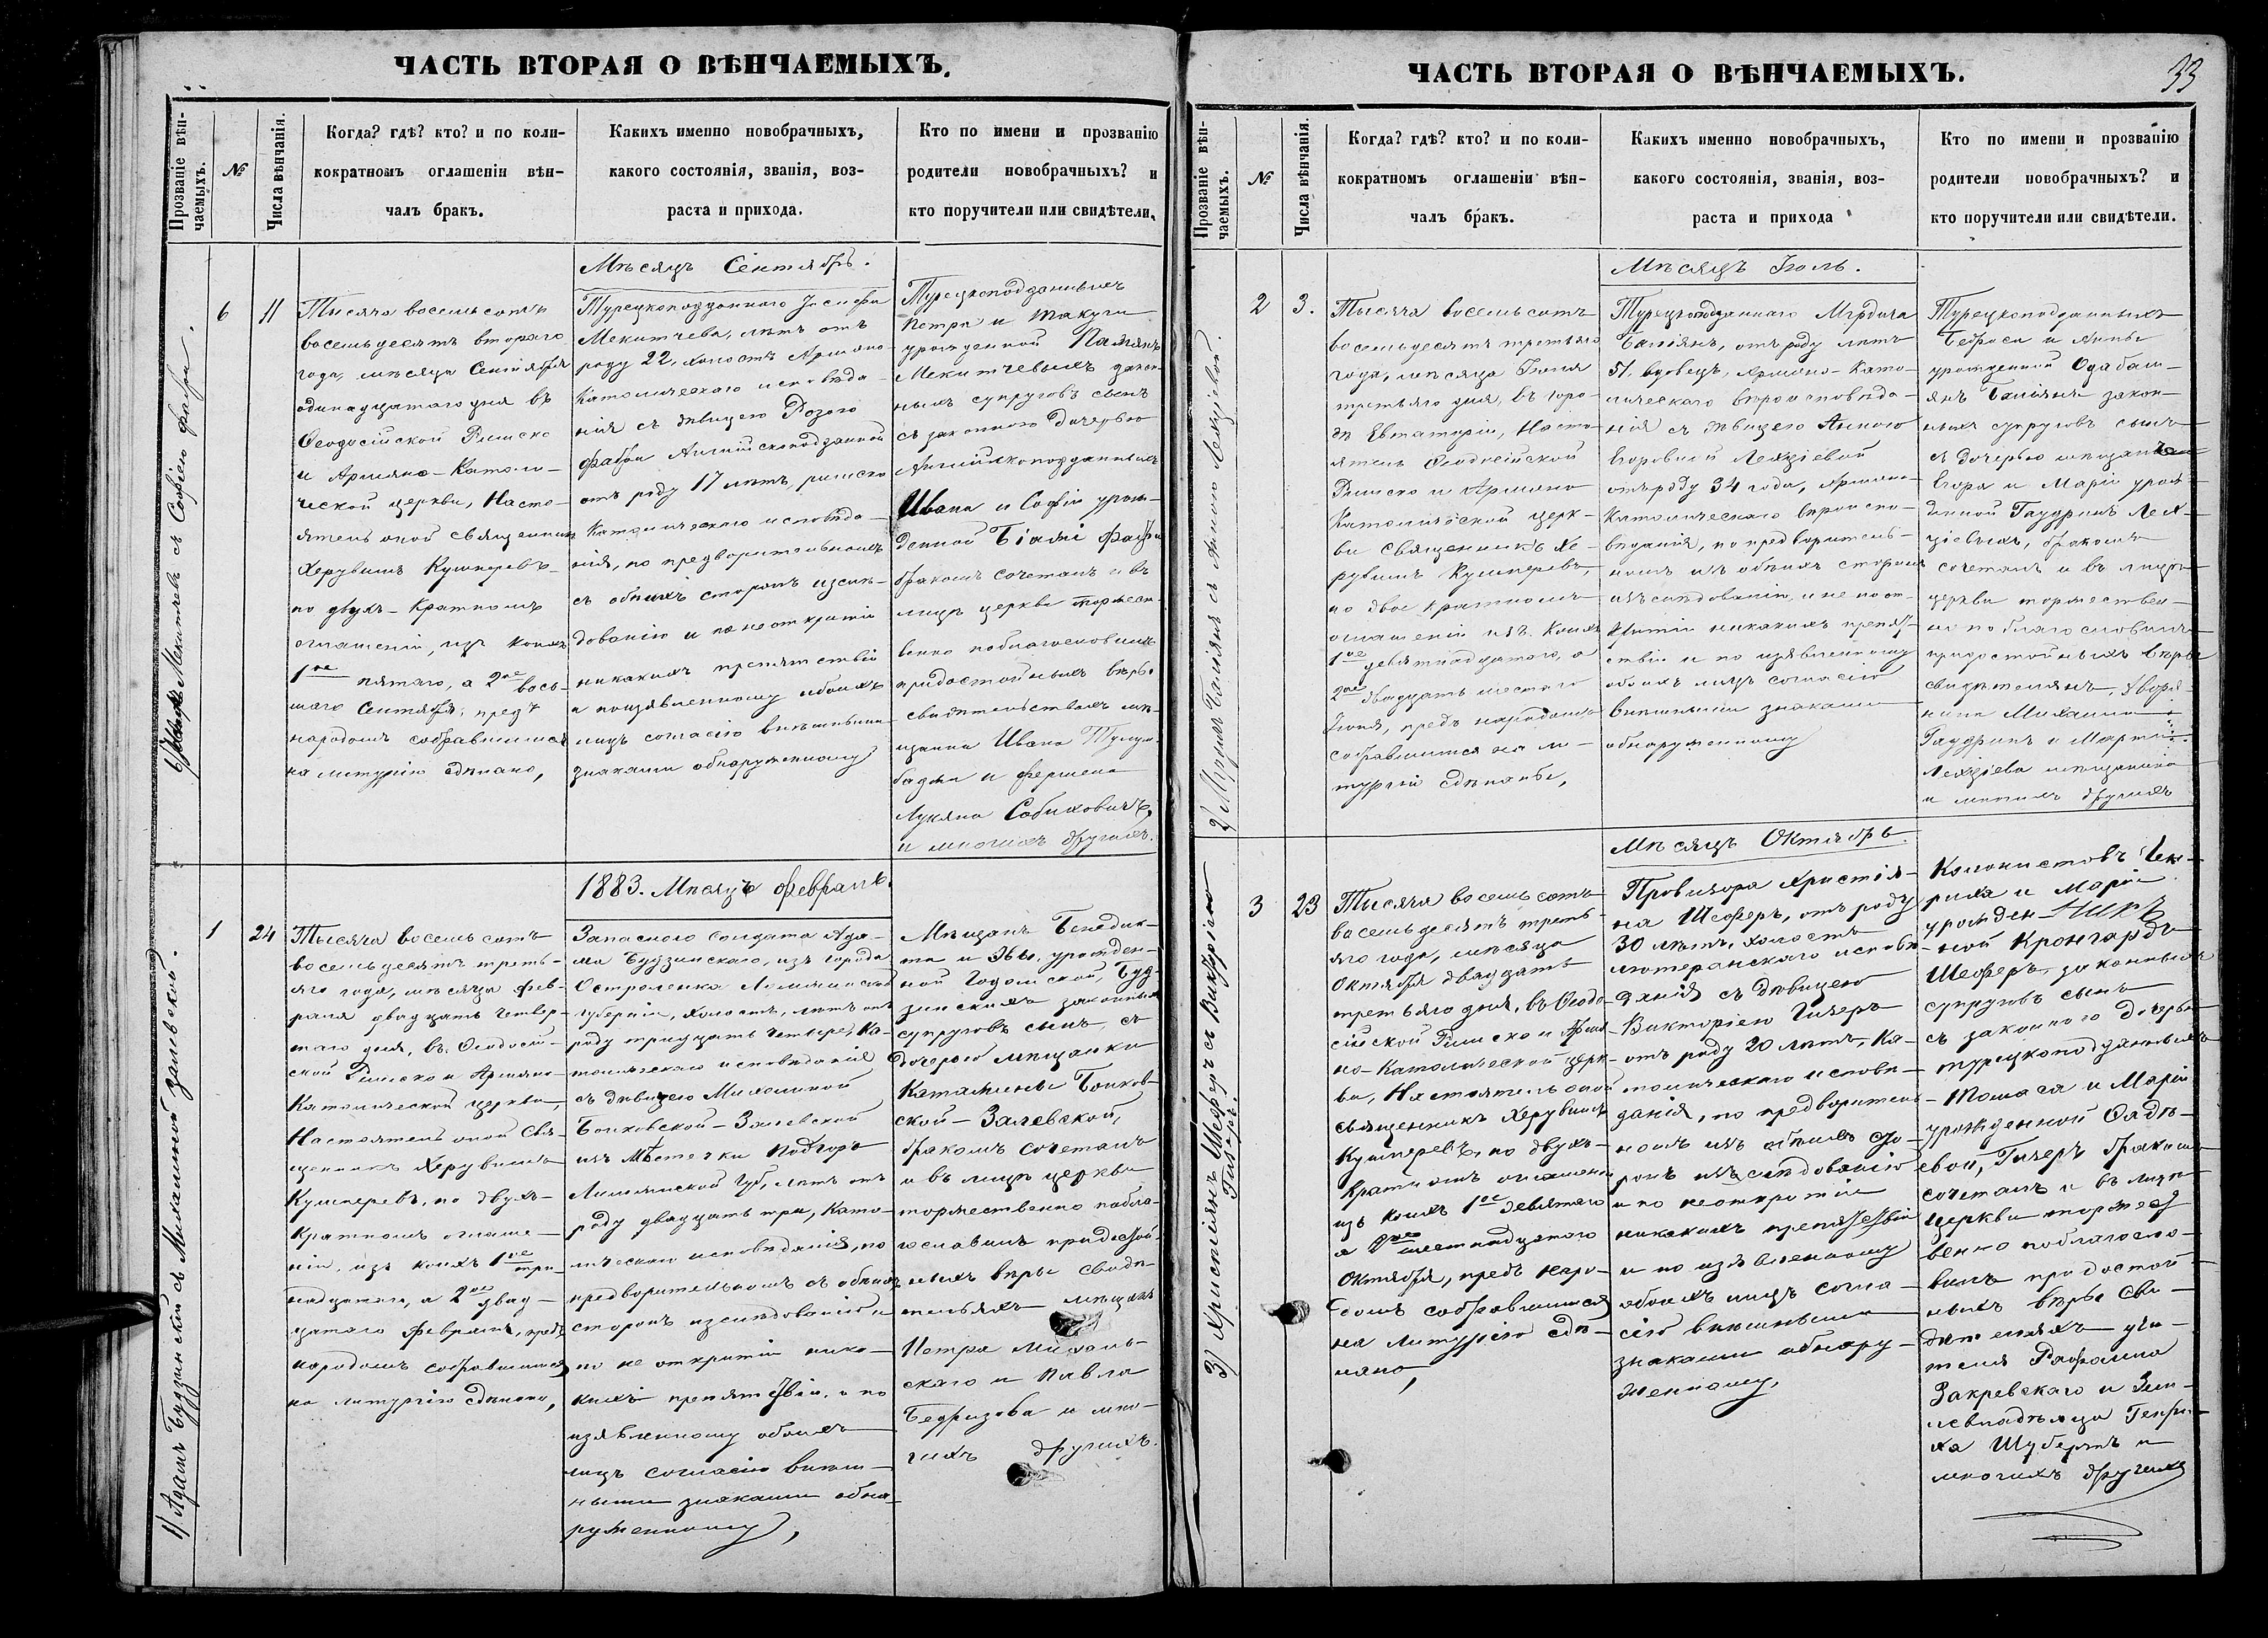 ЧАСТЬ ВТОРАЯ О ВѢНЧАЕМЫХЪ.
Прозваніе вѣн-
чаемыхъ.
№
Числа вѣнчанія.
Когда? гдѣ? кто? и по коли-
кократномъ оглашеніи вѣн-
чалъ бракъ.
Какихъ именно новобрачныхъ,
какого состоянія, званія, воз-
раста и прихода.
Кто по имени и прозванію
родители новобрачныхъ? и
кто поручители или свидѣтели.
Мекитчевъ съ Софіею Фабри.
6
11
Тысяча восемьсотъ
восемьдесятъ втораго
года, мѣсяца Сентября
одинадцатаго дня въ
Ѳеодосійской Римско
и Армяно-Католи-
ческой церкви, Насто-
ятель оной священникъ
Херувимъ Кушнеревъ
по двухъ-кратномъ
оглашеніи, изъ коихъ
1ое пятаго, а 2ое вось-
маго Сентября, предъ
народомъ собравшимся
на литургію сдѣлано,
Мѣсяцъ Сентябрь.
Турецкоподданнаго Іосифа
Мекитчева, лѣтъ отъ
роду 22, холостъ Армяно
Католическаго исповѣда-
нія съ дѣвицею Розою
Фабри Англійскоподданной
отъ роду 17 лѣтъ, римско
Католическаго исповѣда-
нія, по предворительномъ
съ обѣихъ сторонъ изслѣ-
дованію и по неоткрытіи
никакихъ препятствій
и поизявленному обоихъ
лицъ согласію внѣшними
знаками обнаруженному
Турецкоподданныхъ
Петра и Такуги
урожденной
Мекитчевыхъ закон-
ныхъ супруговъ сынъ
съ законною дочерью
Англійскоподданныхъ
Ивана и Софіи урож-
денной Біанхи Фабри
бракомъ сочеталъ и въ
лицѣ церкви торжест-
венно поблагословилъ
придостойныхъ вѣры
свидѣтельствахъ мѣ-
щанина Ивана
и фершела
Лукяна Сабиковичъ,
и многихъ другихъ.
1) Адамъ Будзинскій съ Михалиной Залевской.
1
24
Тысяча восемьсотъ
восемьдесятъ треть-
яго года, мѣсяца фев-
раля двадцать четвер-
таго дня, въ Ѳеодосій-
ской Римско и Армяно
Католической церкви,
Настоятель оной свя-
щенникъ Херувимъ
Кушнеревъ, по двухъ-
кратномъ оглаше-
ніи, изъ коихъ 1ое три-
надцатаго, а 2ое двад-
цатаго Февраля, предъ
народомъ собравшимся
на литургію сдѣлано,
1883. Мѣсяцъ Февраль.
Запаснаго солдата Ада-
ма Будзинскаго, изъ города
Остроленка Ломжинской
губерніи, холостъ, лѣтъ отъ
роду тридцать четыре, Ка-
толическаго исповѣданія
съ дѣвицею Михалиной
Бонковской-Залевской
изъ Мѣстечки Подгоръ
губ., лѣтъ отъ
роду двадцать три, Като-
лическаго исповѣданія, по
предворительномъ съ обѣихъ
сторонъ изслѣдованію и
по не открытіи ника-
кихъ препятствій, и по
изявленному обоихъ
лицъ согласію внѣш-
ными знаками обна-
руженному,
Мѣщанъ Бенедик-
та и Эвы, урожден-
ной Годомской, Буд-
зинскихъ законныхъ
супруговъ сынъ, съ
дочерью мѣщанки
Катажины Бонков-
ской-Залевской,
бракомъ сочеталъ
и въ лицѣ церкви
торжественно побла-
гословилъ придостой-
ныхъ вѣры свидѣ-
тельяхъ мѣщанъ
Петра Михаль-
скаго и Павла
Бедризова и мно-
гихъ другихъ.
ЧАСТЬ ВТОРАЯ О ВѢНЧАЕМЫХЪ.
33
Прозваніе вѣн-
чаемыхъ.
№
Числа вѣнчанія.
Когда? гдѣ? кто? и по коли-
кократномъ оглашеніи вѣн-
чалъ бракъ.
Какихъ именно новобрачныхъ,
какого состоянія, званія, воз-
раста и прихода
Кто по имени и прозванію
родители новобрачныхъ? и
кто поручители или свидѣтели.
2) съ Анною Лехціевой.
2
3.
Тысяча восемьсотъ
восемьдесятъ третьяго
года, мѣсяца Іюля
третьяго дня, въ горо-
дѣ Евпаторіи, Насто-
ятель Ѳеодосійской
Римско и Армяно
Католической церк-
ви священникъ Хе-
рувимъ Кушнеревъ,
по двое кратномъ
оглашеніи изъ коихъ
1ое девятнадцатаго, а
2ое двадцать шестаго
Іюня, предъ народомъ
собравшимся на ли-
тургіи сдѣланы,
Мѣсяцъ Іюль.
Турецкоподданнаго Мгрдича
Баліянъ, отъ роду лѣтъ
51, вдовецъ, Армяно-Като-
лическаго вѣроисповѣда-
нія съ дѣвицею Анною
Егоровной Лехціевой
отъ роду 34 года, Армяно
Католическаго вѣроиспо-
вѣданія, по предворитель-
номъ изъ обѣихъ сторонъ
изслѣдованію, и не по от-
крытіи никакихъ препят-
ствій и по изявленному
обоихъ лицъ согласію
внѣшными знаками
обнаруженному
Турецкоподданныхъ
Бедроса и Анны
урожденной Одабаш-
янъ Баліянъ закон-
ныхъ супруговъ сынъ
съ дочерью мѣщанъ
Егора и Маріи урож-
денной Гаудринъ Лех-
ціевыхъ, бракомъ
сочеталъ и въ лицѣ
церкви торжествен-
но поблагословилъ
придостойныхъ вѣры
свидѣтеляхъ, дворя-
нина Михаила
Гаудринъ и Мартына
Лехціева мѣщанина
и многихъ другихъ
3) Христіянъ Шеферъ съ Викторіею
Гизеръ.
3
23
Тысяча восемьсотъ
восемьдесятъ треть-
яго года, мѣсяца
Октября двадцать
третьяго дня, въ Ѳеодо-
сійской Римско и Армя-
но-Католической церк-
ви, Настоятель оной
священникъ Херувимъ
Кушнеревъ, по двухъ-
кратномъ оглашеніи
изъ коихъ 1ое девятаго
а 2ое шестнадцатаго
Октября, предъ наро-
домъ собравшимся
на литургію сдѣ-
лано,
Мѣсяцъ Октябрь.
Провизора Христія-
на Шеферъ, отъ роду
30 лѣтъ, холостъ
лютеранскаго исповѣ-
данія съ дѣвицею
Викторіею Гизеръ
отъ роду 20 лѣтъ, Ка-
толическаго исповѣ-
данія, по предворитель-
номъ изъ обѣихъ сто-
ронъ изслѣдованію
и по неоткрытіи
никакихъ препятствій
и по изявленному
обоихъ лицъ согла-
сію внѣшными
знаками обнару-
женному,
Колонистовъ Ген-
риха и Маріи
урожден-
ной Кронгардъ
Шеферъ, законныхъ
супруговъ сынъ
съ законною дочерью
турецкоподданныхъ
Томаса и Маріи
урожденной Фадѣ-
евой, Гизеръ бракомъ
сочеталъ и въ лицѣ
церкви торжест-
венно поблагосло-
вилъ придостой-
ныхъ вѣры сви-
дѣтеляхъ учи-
теля Рафаила
Закревскаго и Зем-
левладѣльца Генри-
ха Шубертъ и
многихъ другихъ